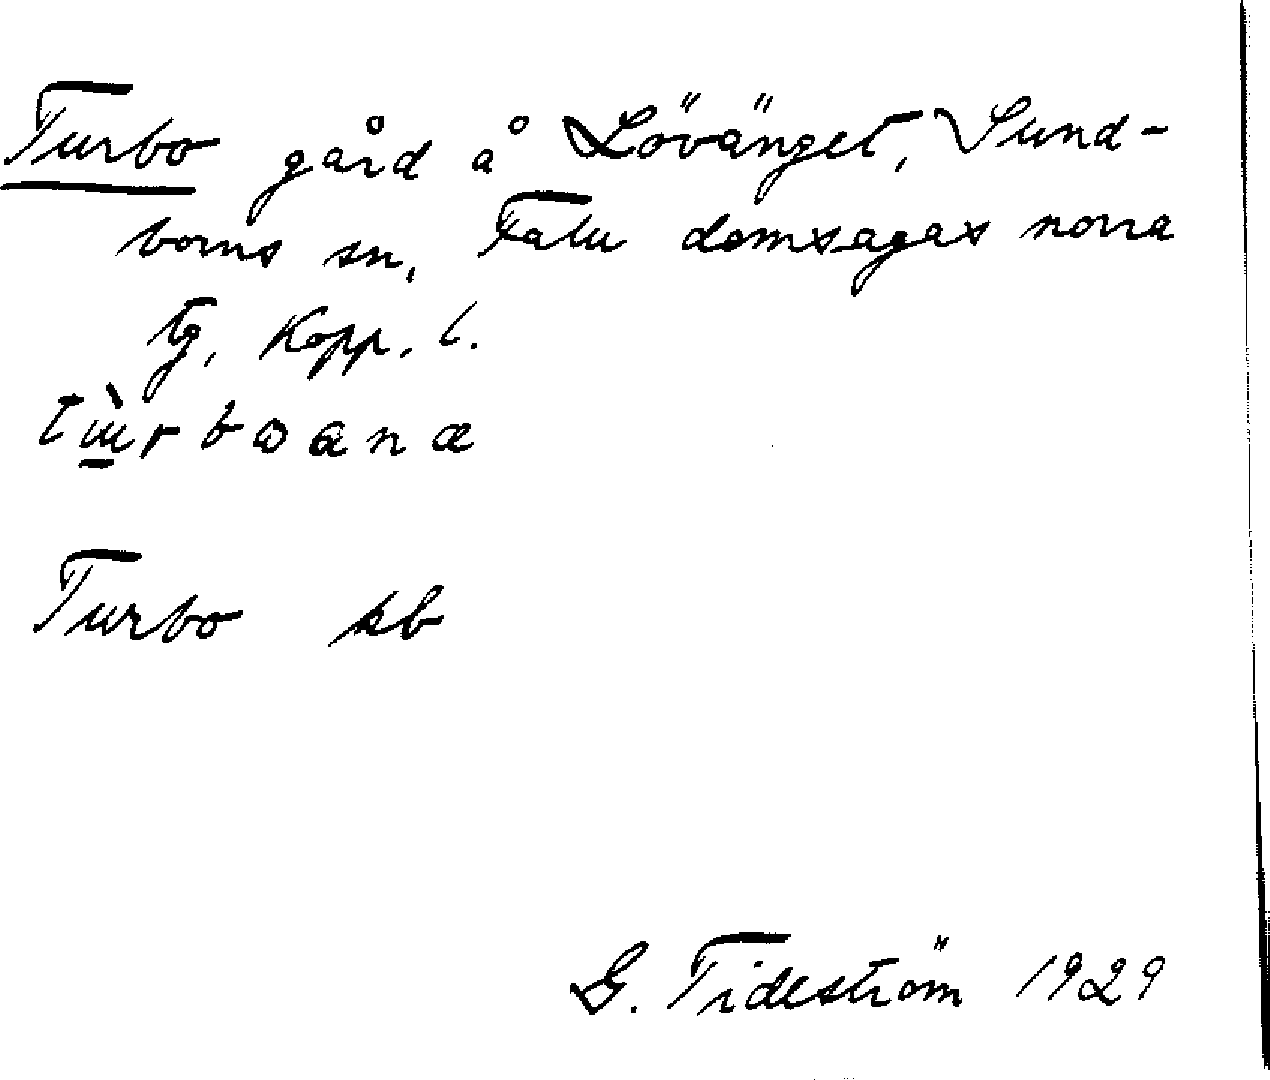 Turbo gård å Lövänget, Sund-
borns sn, Falu domsagas norra
tg, Kopp. l.
Turbo kb
G. Tideström 1929